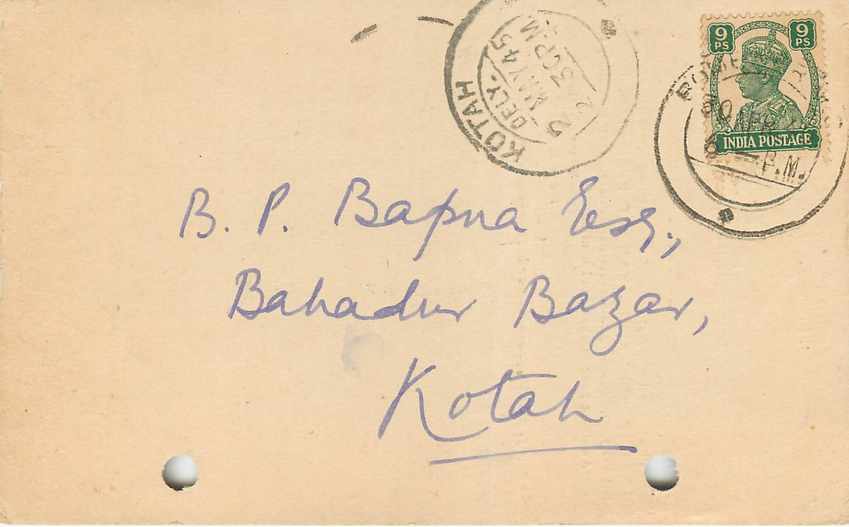 KOTAH
DELY.
2 MAY 45
3 30 P.M.
9 PS 9 PS
INDIA POSTAGE
P.M.
B. P. Bapna Esq.,
Bahadur Bazar,
Kotah